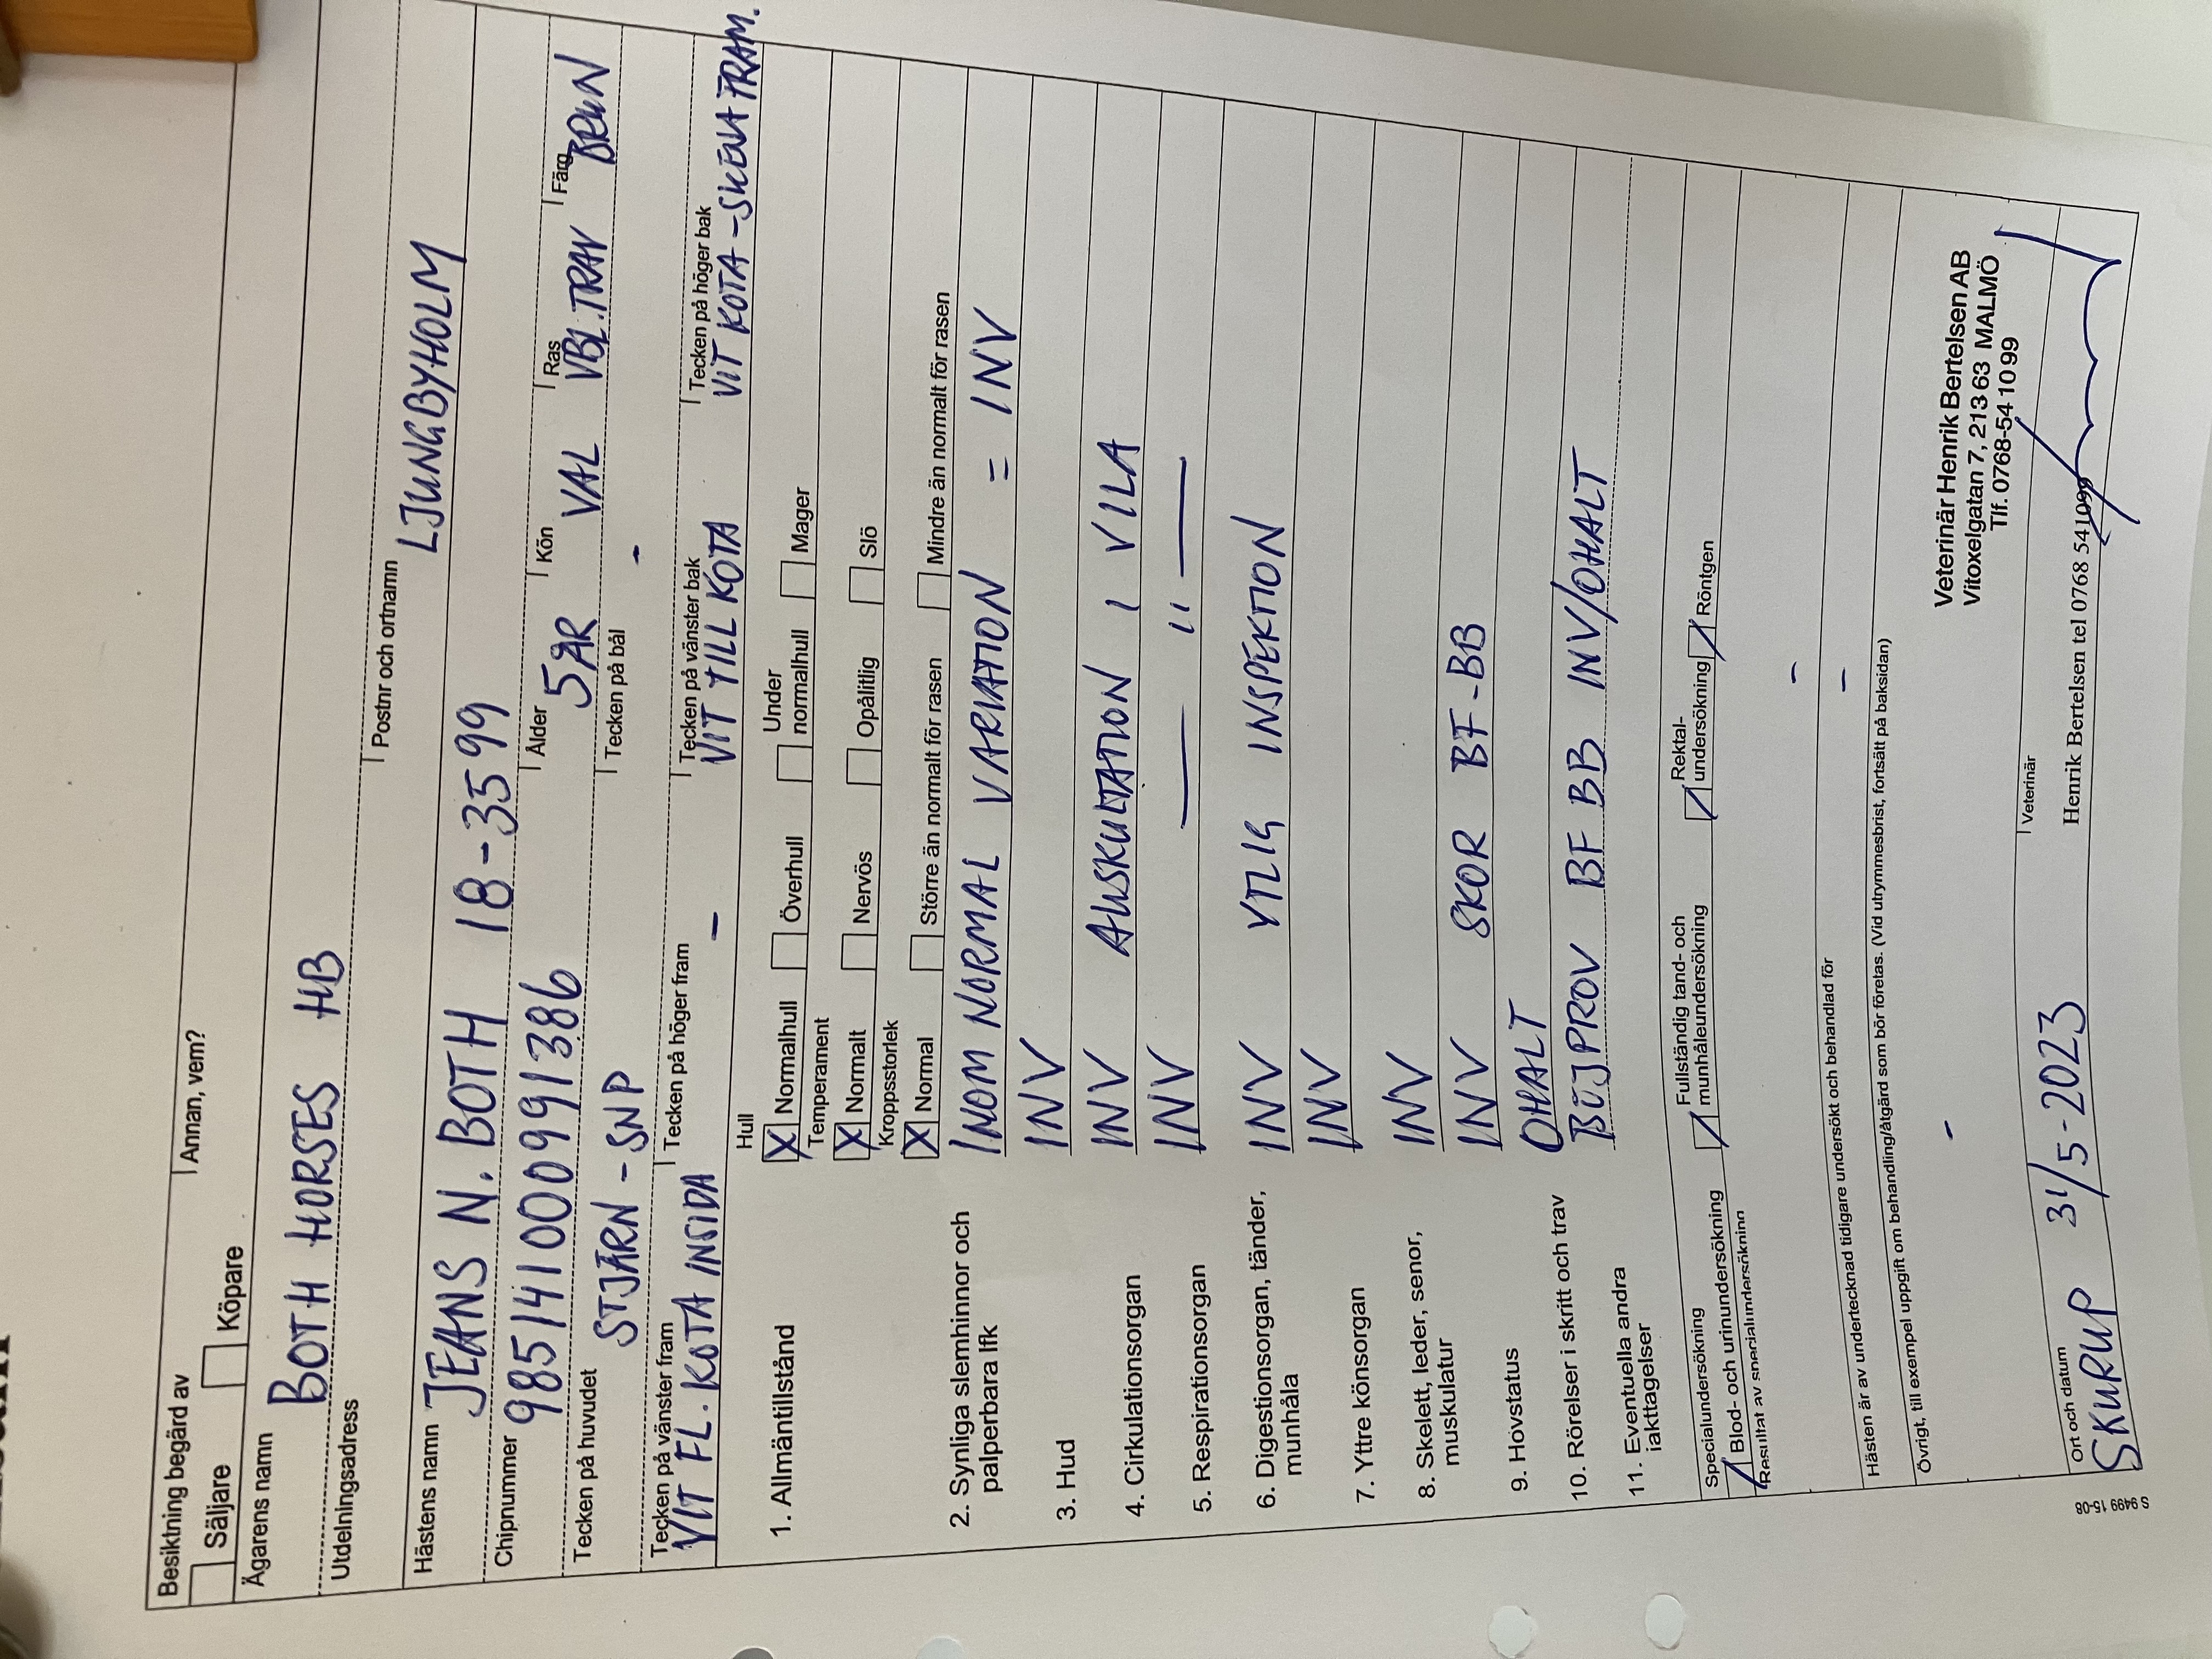 Besiktning begärd av
Säljare Köpare Annan, vem?
Ägarens namn
BOTH HORSES HB
Utdelningsadress Postnr och ortnamn
LJUNGBYHOLM
Hästens namn JEANS N. BOTH 18-3599
Chipnummer Ålder Kön Ras Färg
985141000991386 5ÅR VAL VBL.TRAV BRUN
Tecken på huvudet Tecken på bål
STJÄRN - SNP -
Tecken på vänster fram Tecken på höger fram Tecken på vänster bak Tecken på höger bak
VIT FL. KOTA INSIDA - VIT TILL KOTA VIT KOTA - SKENA FRAM.
Hull
1. Allmäntillstånd X Normalhull Överhull Under normalhull Mager
Temperament
X Normalt Nervös Opålitlig Slö
Kroppsstorlek
X Normal Större än normalt för rasen Mindre än normalt för rasen
2. Synliga slemhinnor och INOM NORMAL VARIATION = INV
palperbara lfk
3. Hud INV
4. Cirkulationsorgan INV AUSKULTATION I VILA
5. Respirationsorgan INV — " —
6. Digestionsorgan, tänder, INV YTLIG INSPEKTION
munhåla
7. Yttre könsorgan INV
8. Skelett, leder, senor, INV
muskulatur
9. Hovstatus INV SKOR BF-BB
10. Rörelser i skritt och trav OHALT
11. Eventuella andra BÖJPROV BF BB INV/OHALT
iakttagelser
Specialundersökning
Blod- och urinundersökning Fullständig tand- och munhåleundersökning Rektal-undersökning Röntgen
Resultat av specialundersökning
-
Hästen är av undertecknad tidigare undersökt och behandlad för
-
Övrigt, till exempel uppgift om behandling/åtgärd som bör företas. (Vid utrymmesbrist, fortsätt på baksidan)
-
Veterinär Henrik Bertelsen AB
Vitoxelgatan 7, 213 63 MALMÖ
Tlf. 0768-54 10 99
Ort och datum Veterinär
SKURUP 31/5-2023 Henrik Bertelsen tel 0768 541099
S 9499 15-08